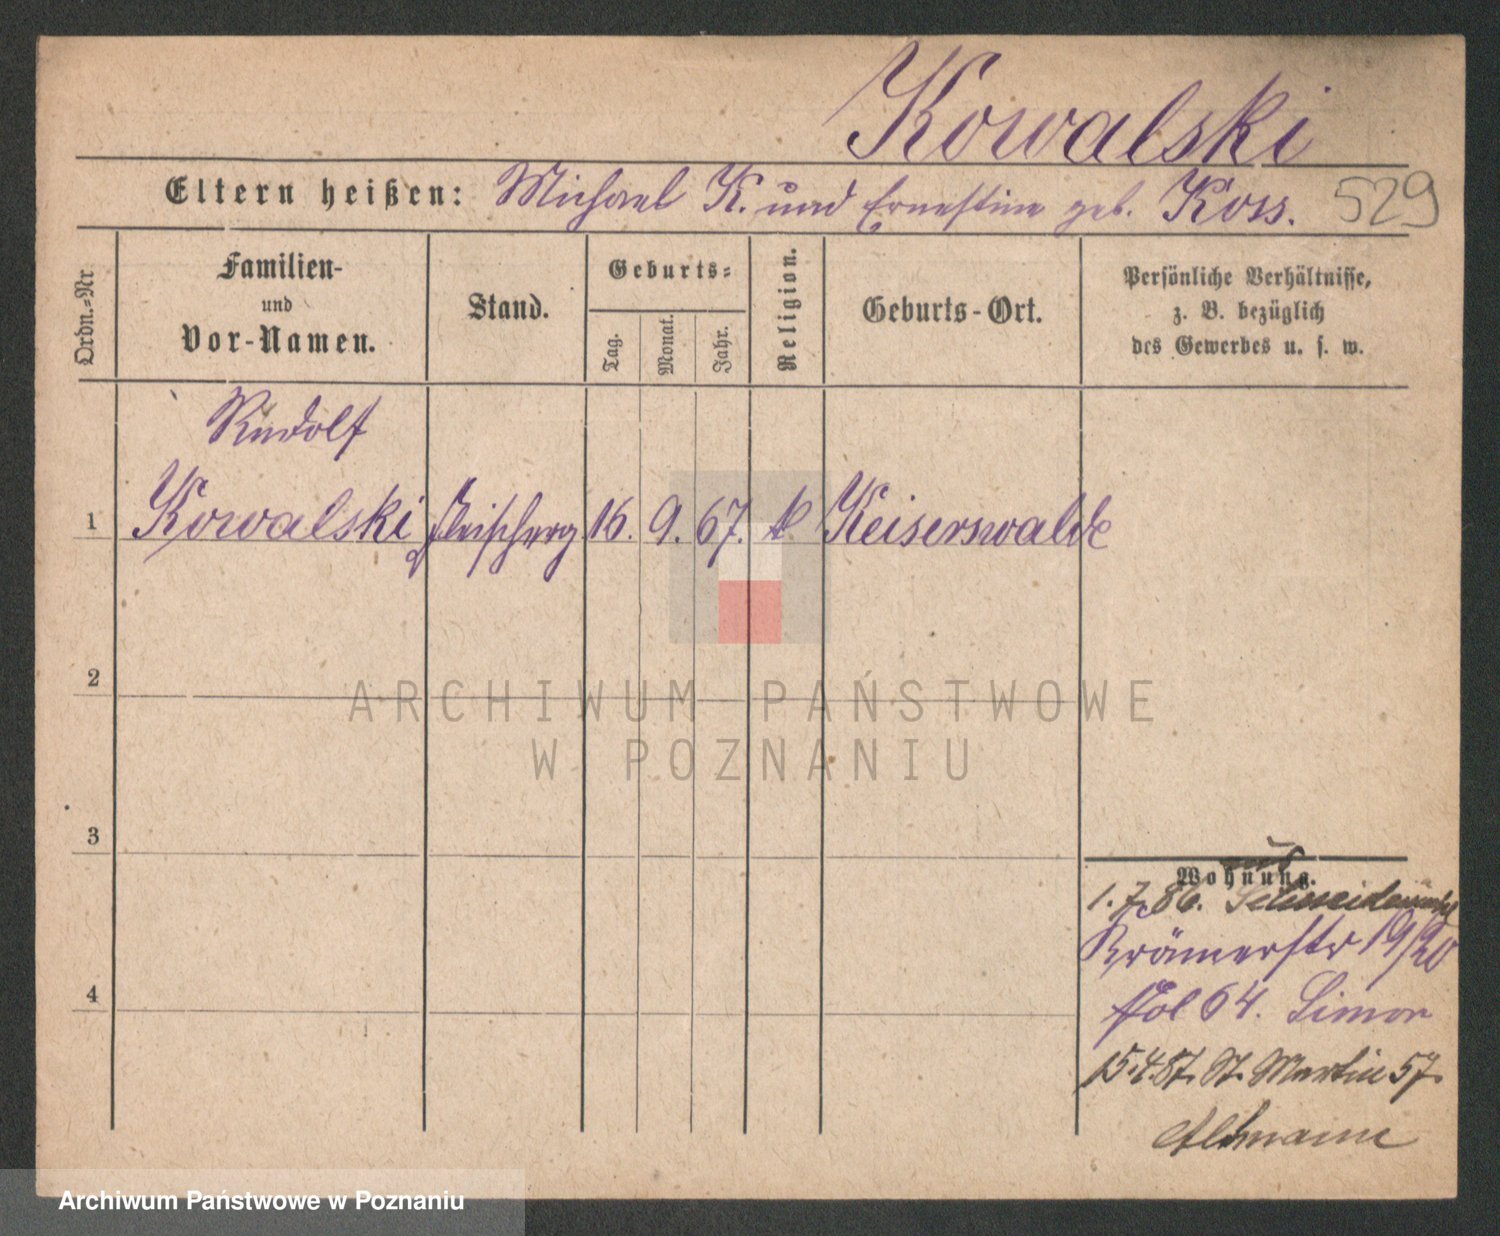 Kowalski
Eltern heißen: Michael K. und Ernestine geb. Koss. 529
Ordn.-Nr.
Familien-
und
Vor-Namen.
Stand.
Geburts-
Tag.
Monat.
Jahr.
Religion.
Geburts-Ort.
Persönliche Verhältnisse,
z. B. bezüglich
des Gewerbes u. s. w.
Rudolf
1 Kowalski 16. 9. 67. k Keiserswalde
2
3
4
ARCHIWUM PAŃSTWOWE
W POZNANIU
aus
Wohnung.
1. 7. 86. Schneidemühl
Krämerstr 19/20
Pol 64. Simon
15.4.87. St. Martin 57.
Altmann
Archiwum Państwowe w Poznaniu